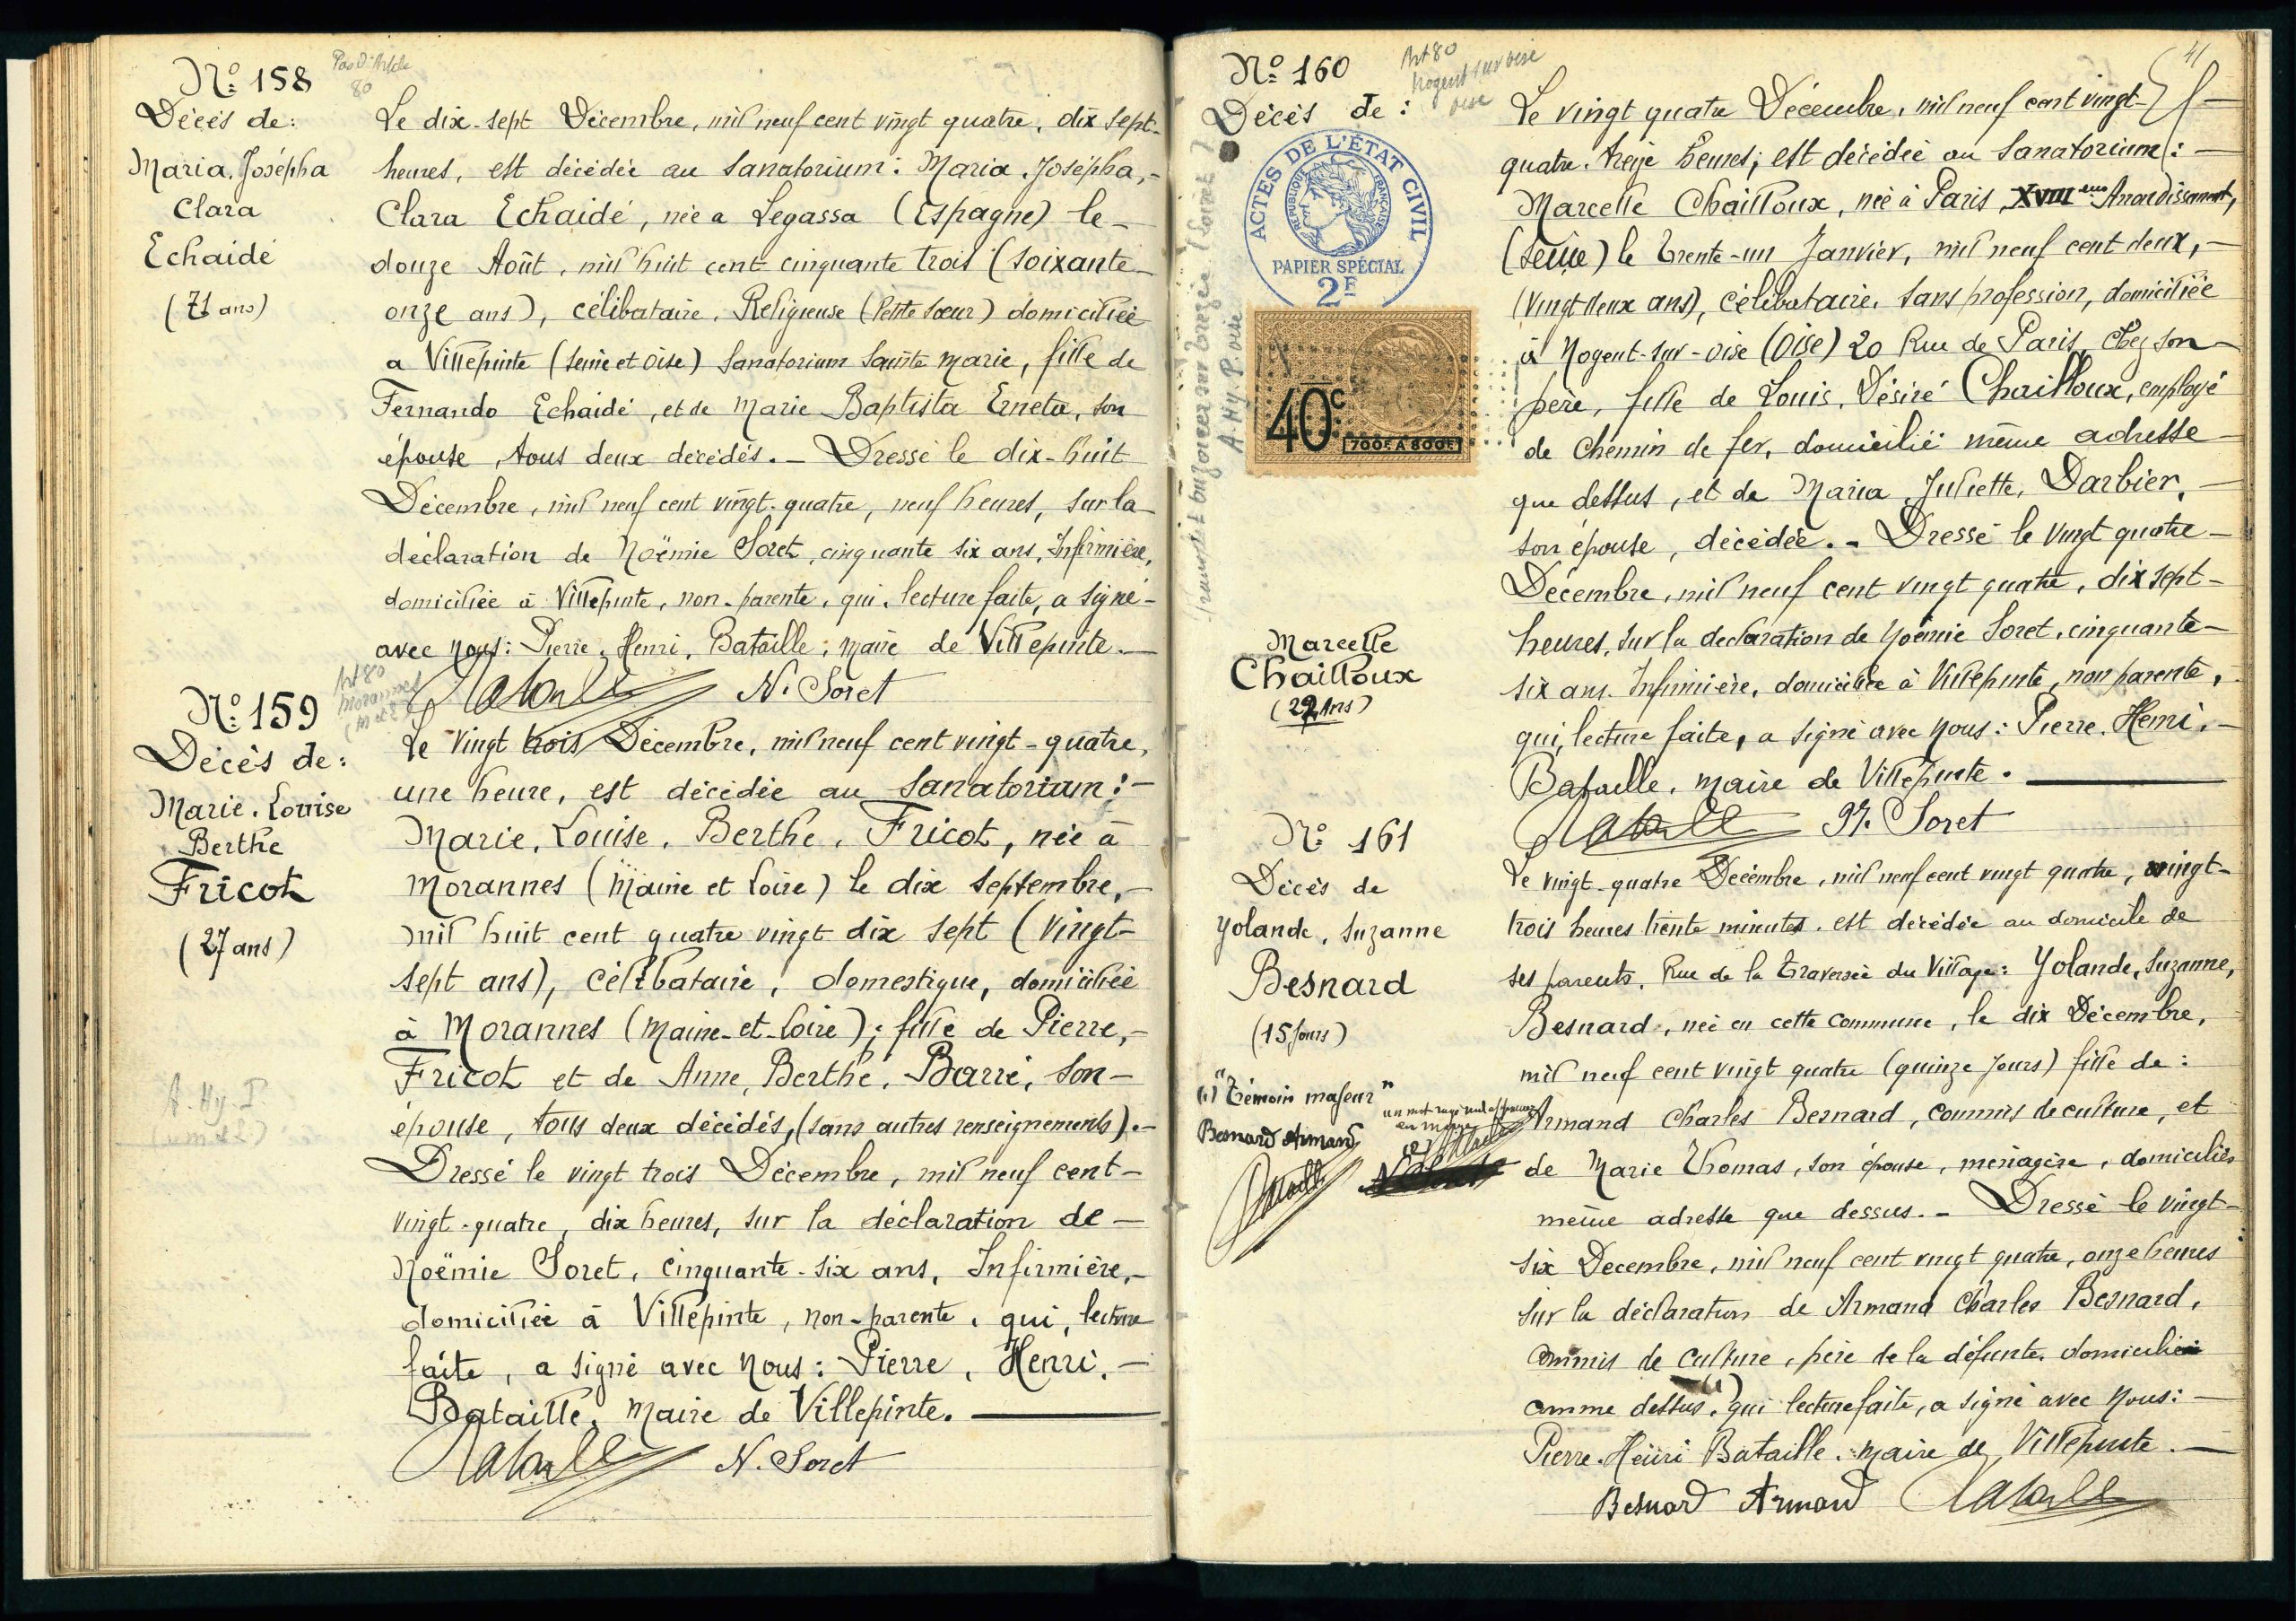 Nº 158
Pas d'Article
80
Décès de:
Maria, Josépha
Clara
Echaidé
(71 ans)
Le dix-sept Décembre, mil neuf cent vingt quatre, dix sept-
heures, est décédée au Sanatorium: Maria, Josépha,-
Clara Echaidé, née a Legassa (Espagne) le-
douze Août, mil huit cent cinquante trois (soixante-
onze ans), célibataire, Religieuse (Petite sœur) domiciliée
a Villepinte (Seine et Oise) Sanatorium Sainte Marie, fille de
Fernando Echaidé, et de Marie Baptista Erneta, son
épouse, tous deux décédés.- Dressé le dix-huit
Décembre, mil neuf cent vingt-quatre, neuf heures, sur la
déclaration de Noëmie Soret, cinquante six ans, Infirmière,
domiciliée à Villepinte, non-parente, qui, lecture faite, a signé-
avec nous: Pierre, Henri, Bataille, maire de Villepinte.-
Bataille N. Soret
Nº 159
Art 80
Morannes
(M et L)
Décès de:
Marie, Louise
Berthe
Fricot
(27 ans)
A. Hy. P.
Le vingt trois Décembre, mil neuf cent vingt-quatre,
une heure, est décédée au Sanatorium:-
Marie, Louise, Berthe, Fricot, née à
Morannes (Maine et Loire) le dix Septembre,-
mil huit cent quatre vingt dix sept (vingt-
sept ans), célibataire, domestique, domiciliée
à Morannes (Maine-et-Loire); fille de Pierre,-
Fricot et de Anne, Berthe, Barré, son-
épouse, tous deux décédés, (sans autres renseignements).-
Dressé le vingt trois Décembre, mil neuf cent-
vingt-quatre, dix heures, sur la déclaration de-
Noëmie Soret, cinquante-six ans, Infirmière,-
domiciliée à Villepinte, non-parente, qui, lecture
faite, a signé avec nous: Pierre, Henri,-
Bataille, maire de Villepinte.
Bataille N. Soret
41
Nº 160
Art 80
Nogent sur Oise
Oise
Décès de:
ACTES DE L'ÉTAT CIVIL
RÉPUBLIQUE FRANÇAISE
PAPIER SPÉCIAL
2F
40c
700F. A 800F.
A. Hy. P. Oise
Marcelle
Chailloux
(22 Ans)
Le vingt quatre Décembre, mil neuf cent vingt-
quatre, treize heures, est décédée au Sanatorium:-
Marcelle Chailloux, née à Paris, XVIIIème Arrondissement,
(Seine) le trente-un Janvier, mil neuf cent deux,-
(vingt deux ans), célibataire, sans profession, domiciliée
à Nogent-sur-Oise (Oise) 20 Rue de Paris, chez son-
père, fille de Louis, Désiré Chailloux, employé
de Chemin de fer, domicilié même adresse-
que dessus, et de Maria, Juliette, Darbier,-
son épouse, décédée.- Dressé le vingt quatre-
Décembre, mil neuf cent vingt quatre, dix sept-
heures, sur la déclaration de Noëmie Soret, cinquante-
six ans, Infirmière, domiciliée à Villepinte, non parente,
qui, lecture faite, a signé avec nous: Pierre, Henri,-
Bataille, maire de Villepinte.
Bataille N. Soret
Nº 161
Décès de
Yolande, Suzanne
Besnard
(15 Jours)
(1) "Témoin majeur"
Besnard Armand
Bataille
Le vingt-quatre Décembre, mil neuf cent vingt quatre, vingt-
trois heures trente minutes, est décédée au domicile de
ses parents, Rue de la Traversée du Village: Yolande, Suzanne,
Besnard, née en cette commune, le dix Décembre,
mil neuf cent vingt quatre (quinze jours) fille de:
Armand Charles Besnard, commis de culture, et
de Marie Thomas, son épouse, ménagère, domiciliés
même adresse que dessus.- Dressé le vingt-
six Décembre, mil neuf cent vingt quatre, onze heures
sur la déclaration de Armand Charles Besnard,
commis de culture, père de la défunte, domicilié
comme dessus, (1) qui lecture faite, a signé avec nous:-
Pierre-Henri Bataille, maire de Villepinte.-
Besnard Armand Bataille